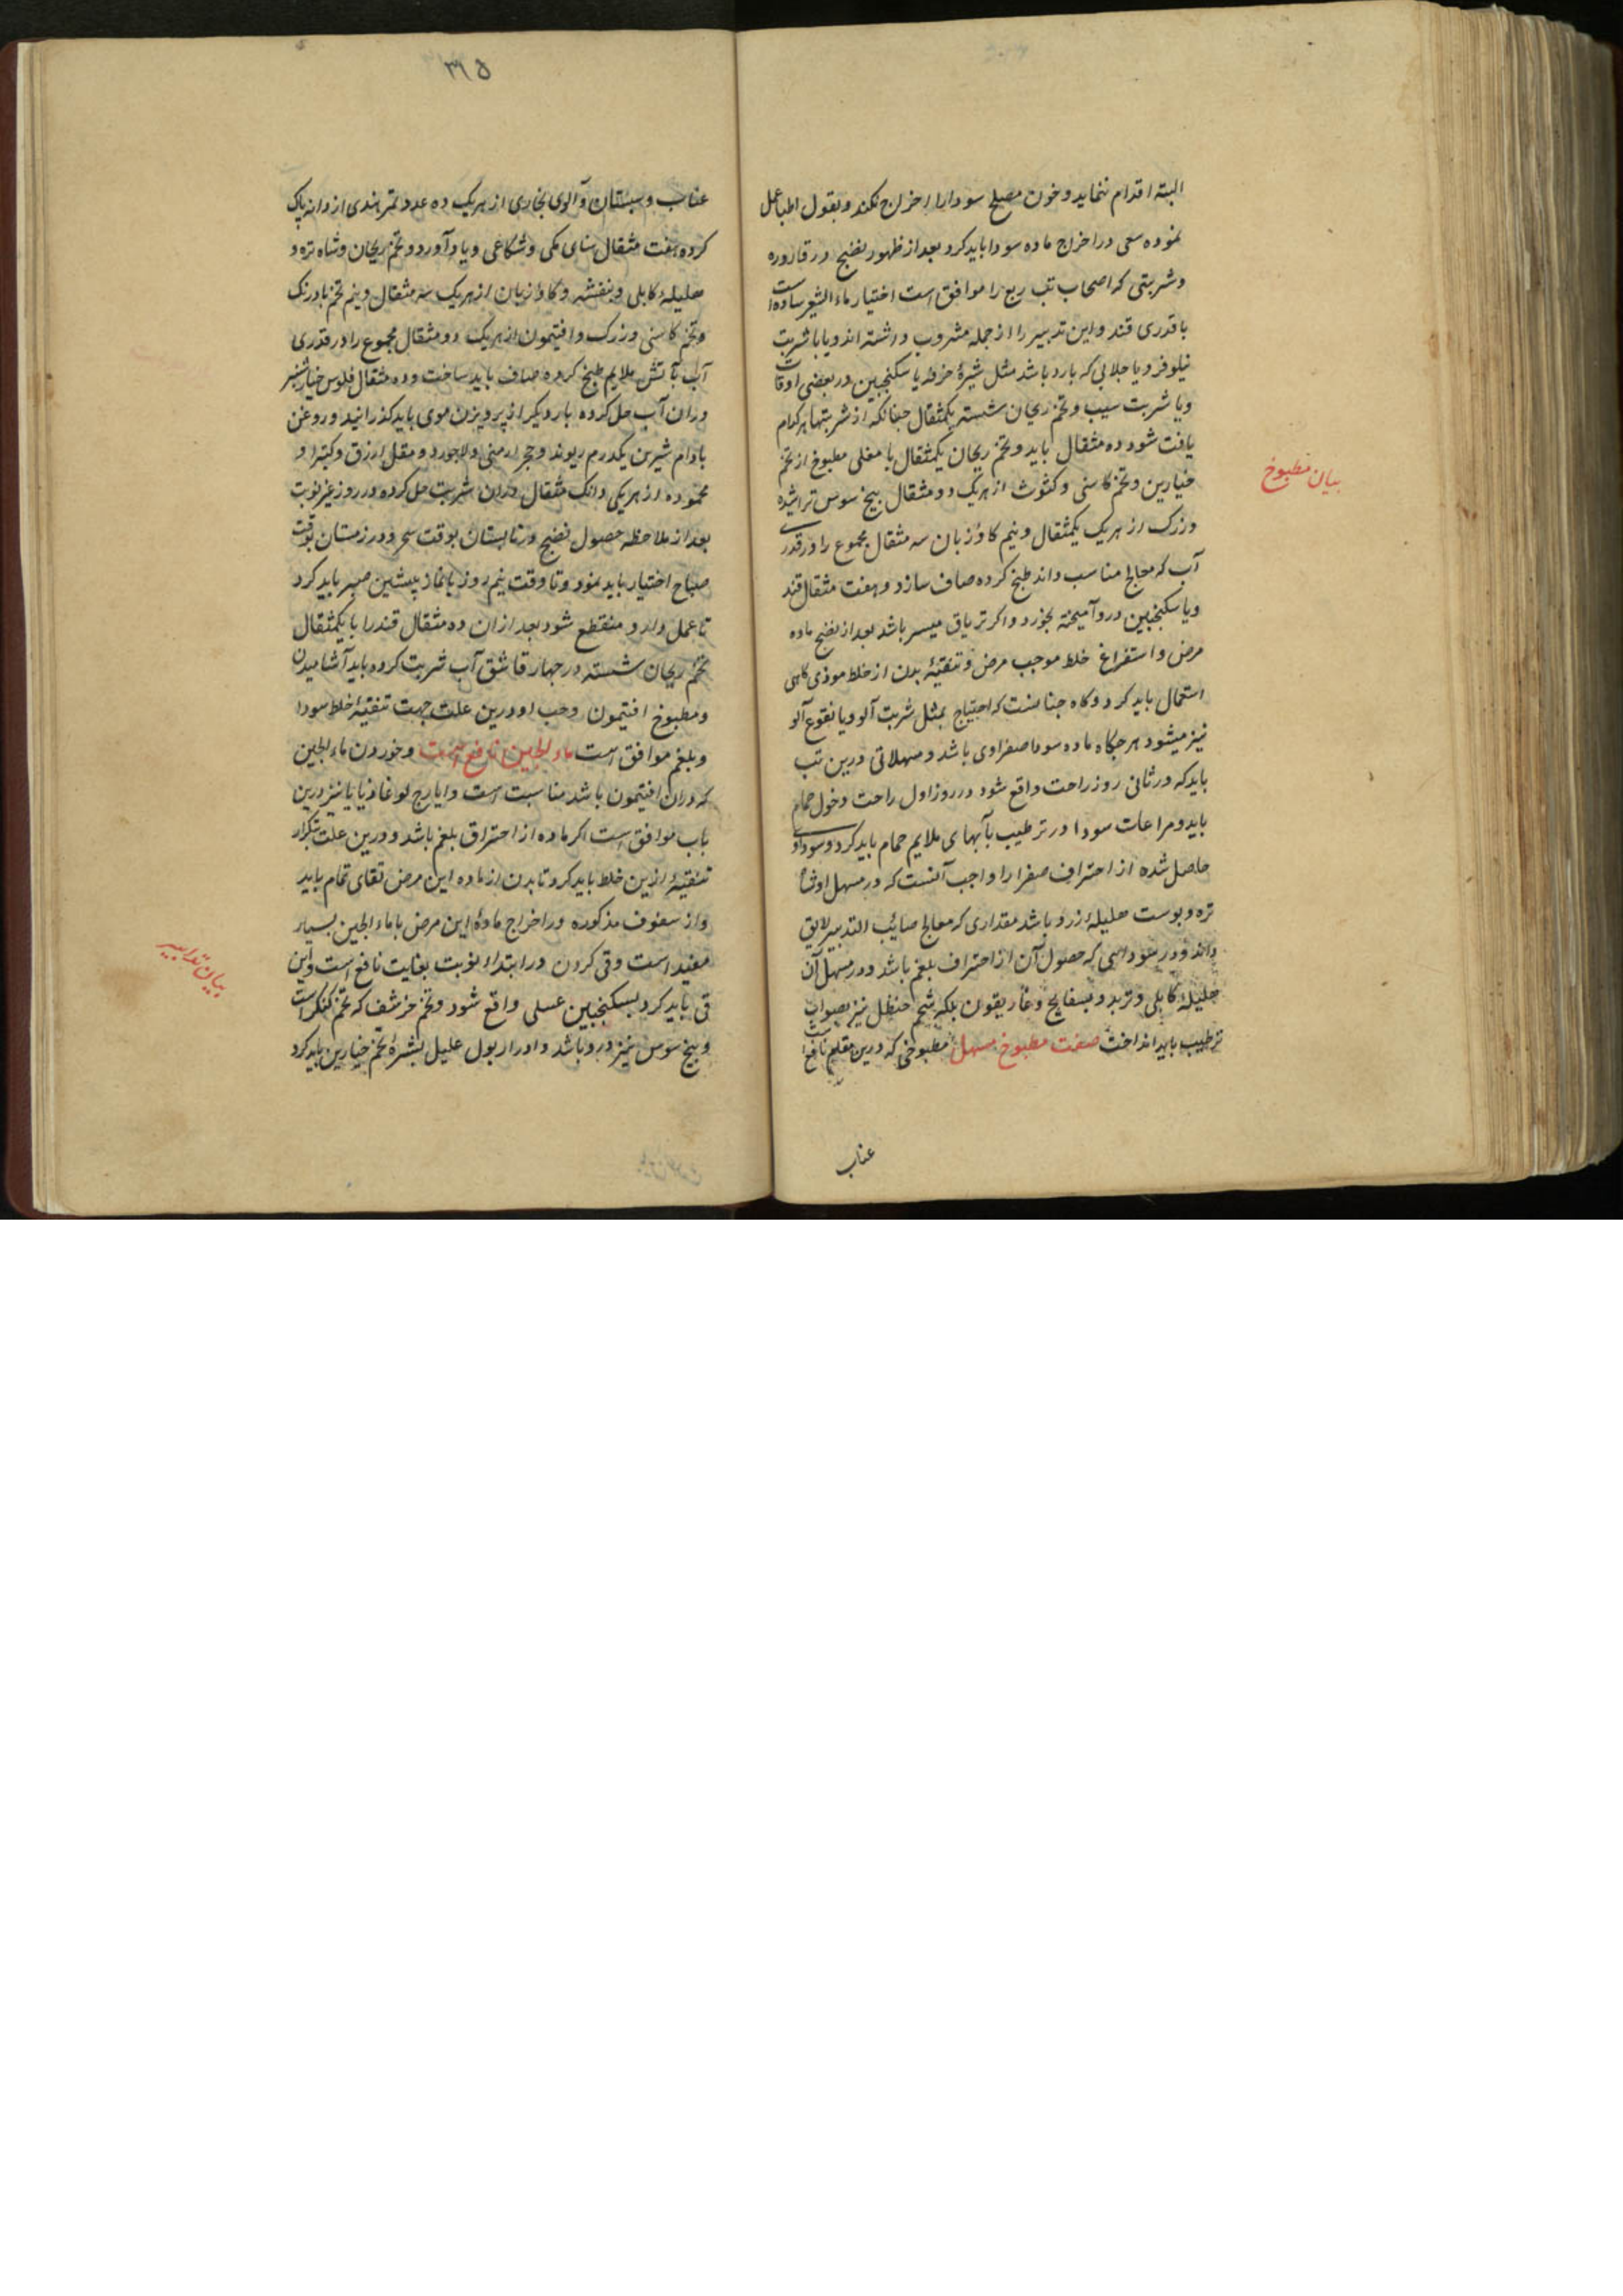 البته اقدام ننماید و خون مصلح سودا را اخراج نکند و بقول اطبا عمل
نموده سعی در اخراج ماده سودا باید کرد بعد از ظهور نضج در قاروره
و شربتی که اصحاب تب ربع را موافق است اختیار ماء الشعیر ساده است
با قدری قند و این تدبیر را از جمله مشروب داشته اند و یا با شربت
نیلوفر و یا جلابی که بارد باشد مثل شیرهٔ خرفه یا سکنجبین در بعضی اوقات
و یا شربت سیب و تخم ریحان شسته یکمثقال چنانکه از شربتها هر کدام
یافت شود ده مثقال باید و تخم ریحان یکمثقال با مغلی مطبوخ از تخم
بیان مطبوخ
خیارین و تخم کاسنی و کثوث از هر یک دو مثقال بیخ سوس تراشیده
و زرک از هر یک یکمثقال و نیم کاوزبان سه مثقال مجموع را در قدری
آب که معالج مناسب داند طبخ کرده صاف سازد و هفت مثقال قند
و یا سکنجبین درو آمیخته بخورد و اکر تریاق میسر باشد بعد از نضج ماده
مرض و استفراغ خلط موجب مرض و تنقیهٔ بدن از خلط موذی کاهی
استعمال باید کرد و کاه چنانست که احتیاج بمثل شربت آلو و یا نقوع آلو
نیز میشود هر جکاه ماده سودا صفراوی باشد و مسهلاتی درین تب
باید که در ثانی روز راحت واقع شود در روز اول راحت دخول حمام
باید و مراعات سودا در ترطیب بآبهای ملایم حمام باید کرد و سوداوی
حاصل شده از احتراق صفرا را واجب آنست که در مسهل او شاه
تره و پوست هلیلهٔ زرد باشد مقداری که معالج صائب التدبیر لایق
داند و در سوداهی که حصول آن از احتراف بلغم باشد و در مسهل آن
هلیلهٔ کابلی و تربد و بسفایج و غاریقون بلکه شحم حنظل نیز بصواب
ترطیب باید انداخت صفت مطبوخ مسهل مطبوخی که درین مقام نافع است
عناب
۳۶۵
عناب و سپستان و آلوی بخاری از هر یک ده عدد تمر هندی از دانه پاک
کرده هفت مثقال سنای مکی و شکاعی و بادآورد و تخم ریحان و شاه تره و
هلیلهٔ کابلی و بنفشه و کاوزبان از هر یک سه مثقال و نیم تخم بادرنک
و تخم کاسنی و زرک و افتیمون از هر یک دو مثقال مجموع را در قدری
آب بآتش ملایم طبخ کرده صاف باید ساخت و ده مثقال فلوس خیارشنبر
در آن آب حل کرده بار دیکر از پرویزن موی باید کذرانید و روغن
بادام شیرین یکدرم ریوند و حجر ارمنی و لاجورد و مقل ازرق و کتیرا و
محموده از هر یکی دانک مثقال در آن شربت حل کرده در روز غیر نوبت
بعد از ملاحظه حصول نضج در تابستان بوقت سحر و در زمستان بوقت
صباح اختیار باید نمود و تا وقت نیم روز یا نماز پیشین صبر باید کرد
تا عمل دارو منقطع شود بعد از آن ده مثقال قند را با یکمثقال
تخم ریحان شسته در جهار قاشق آب شربت کرده باید آشامیدن
و مطبوخ افتیمون و حب او درین علت جهت تنقیهٔ خلط سودا
و بلغم موافق است ماء الجبن نافع است و خوردن ماء الجبن
که در آن افتیمون باشد مناسبت است و ایارج لوغاذیا یا نیز درین
باب موافق است اکر ماده از احتراق بلغم باشد و درین علت بتکرار
تنقیهٔ ازین خلط باید کرد تا بدن از ماده این مرض نقای تمام یابد
و از سفوف مذکوره در اخراج مادهٔ این مرض با ماء الجبن بسیار
بیان تدابیر
مفید است و قی کردن در ابتداء نوبت بغایت نافع است و این
قی باید کرد بسکنجبین عسلی واقع شود و تخم خرشف که تخم کنکر است
و بیخ سوس نیز درو باشد و ادرار بول علیل بشیرهٔ تخم خیارین باید کرد